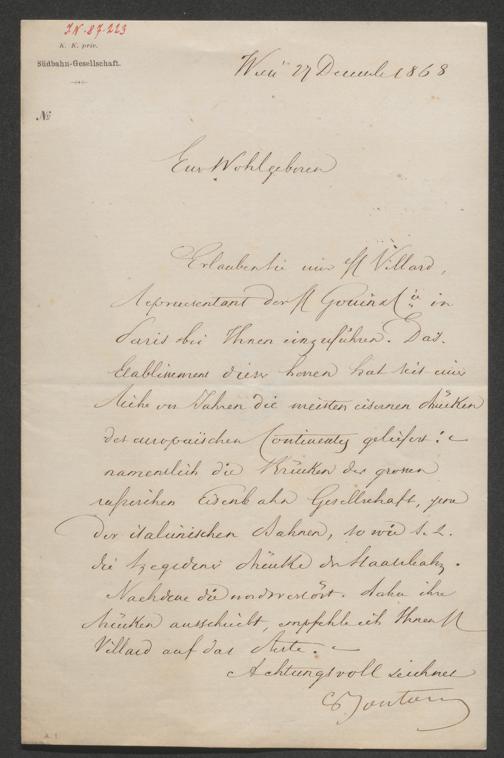 IN. 87.223
K. K. priv.
Südbahn-Gesellschaft.
№
Wien 27 Decembr 1868
Euer Wohlgeboren
Erlauben Sie mir H Villard,
Representant der H Gouin & Cie in
Paris bei Ihnen einzuführen. Das
Etablissement dieser herren hat seit einer
Reihe von Jahren die meisten eisernen Brücken
des europäischen Continentes geliefert:
namentlich die Brücken der grossen
russischen Eisenbahn Gesellschaft, jene
der italienischen Bahnen, so wie s. Z.
die Szegediner Brücke der Staatsbahn.
Nachdem die nordwestöst. Bahn ihre
Brücken ausschreibt, empfehle ich Ihnen H
Villard auf das Beste.
Achtungsvoll zeichnet
Bontoux